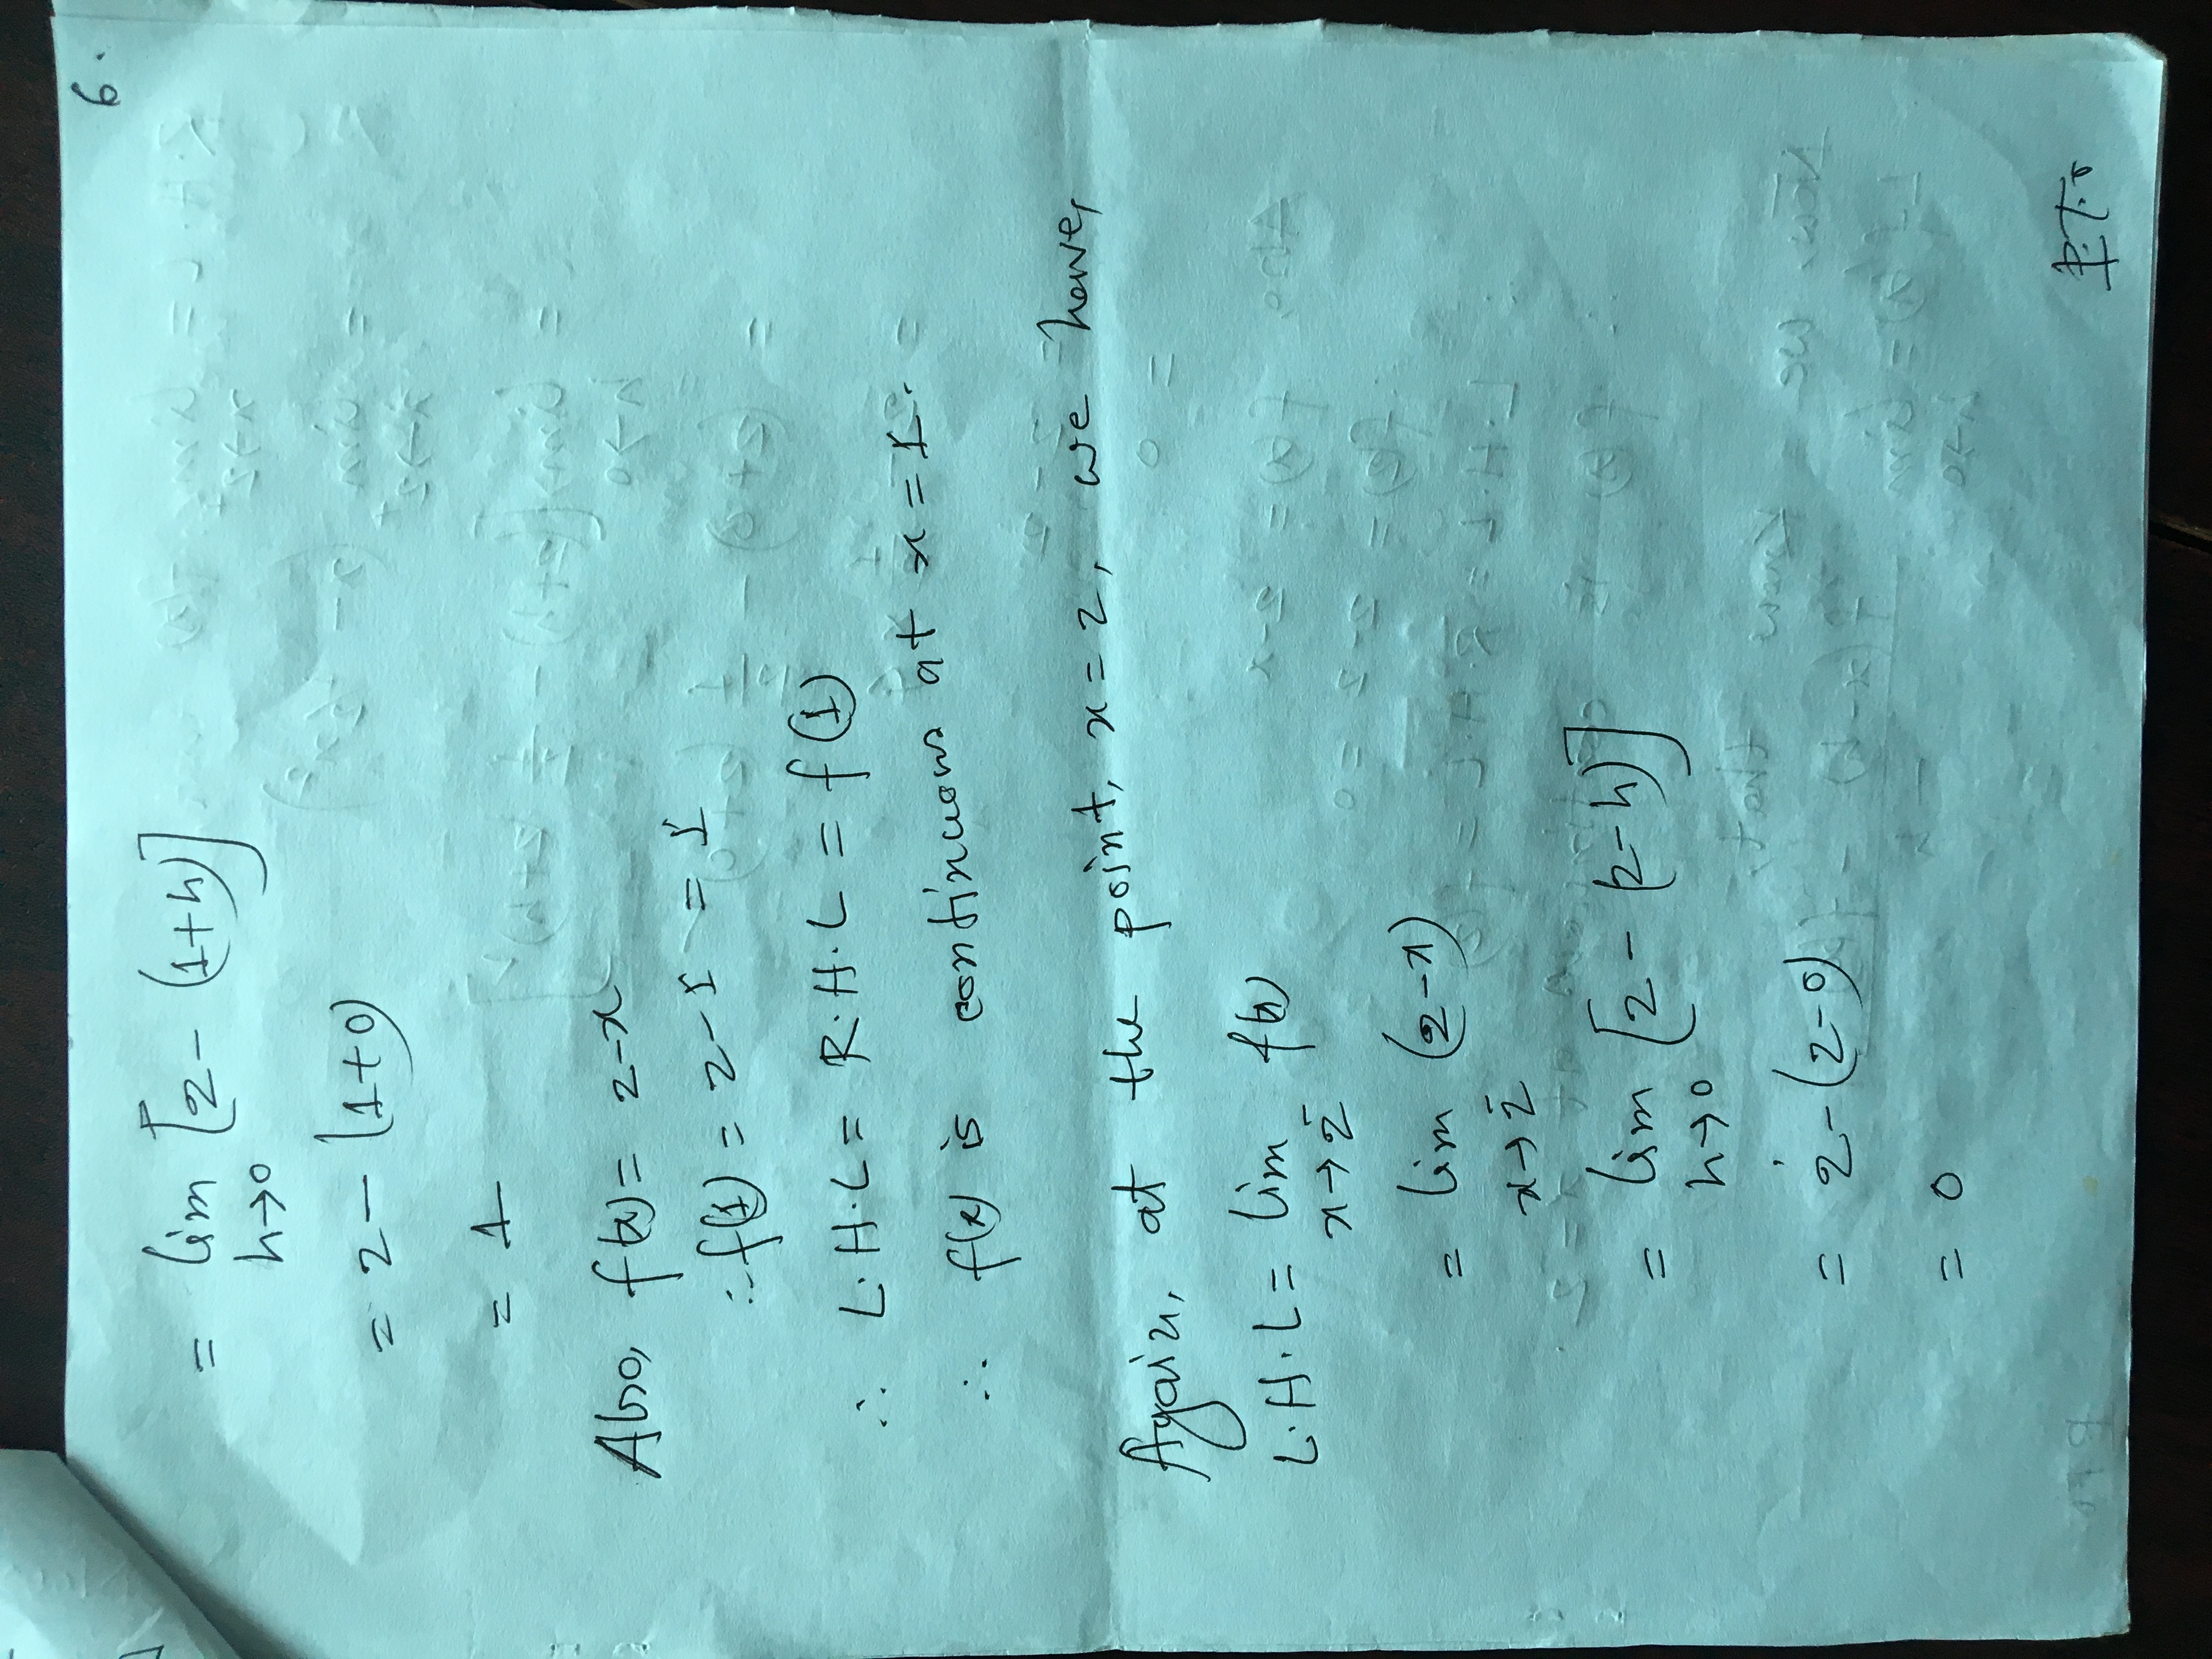 6.
= lim [2 - (1+h)]
h→0
= 2 - (1+0)
= 1
Also, f(x) = 2-x
∴ f(1) = 2-1 = 1
∴ L.H.L = R.H.L = f(1)
∴ f(x) is continuous at x = 1.
Again, at the point, x = 2, we have,
L.H.L = lim f(x)
x→2⁻
= lim (2-x)
x→2⁻
= lim [2 - (2-h)]
h→0
= 2 - (2-0)
= 0
P.T.O